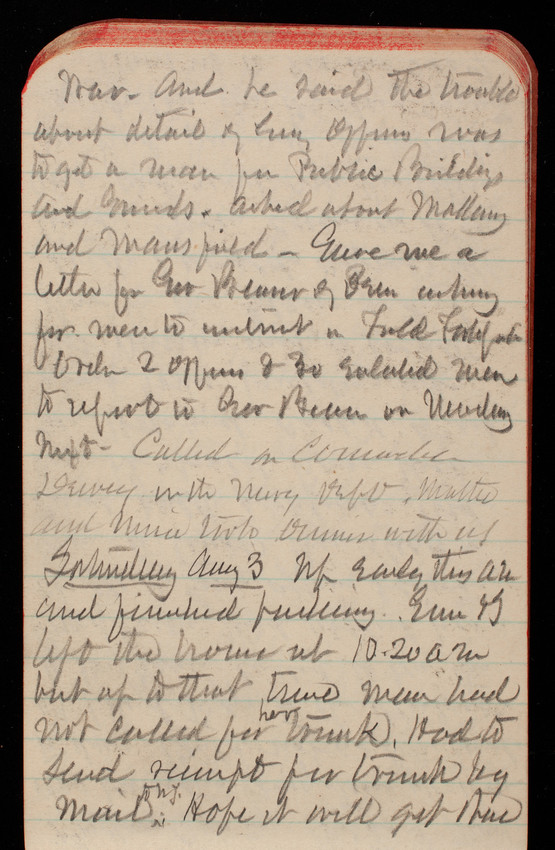 War. And he said the trouble
about detail of Eng Officers was
to get a man for Public Buildings
and Grounds. asked about
and Mansfield - Gave me a
letter for Gov of asking
for men to instruct in Field
Order 2 Officers & 30 enlisted men
to report to Gov on
next - Called on Comander
Dewey in the Navy Dept. Mother
and took dinner with us
Saturday Aug 3 Up early this am
and finished packing. &
left the house at 10.20 am
but up to that time man had
not called for her trunk. Had to
send receipt for trunk by
mail to N.Y. Hope it will get there